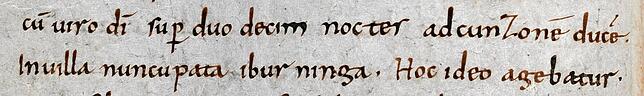 cū uiro dī sup̄ duo decim noctes adcunꝯonē ducē.
Inuilla nuncupata iburninga. Hoc ideo agebatur.